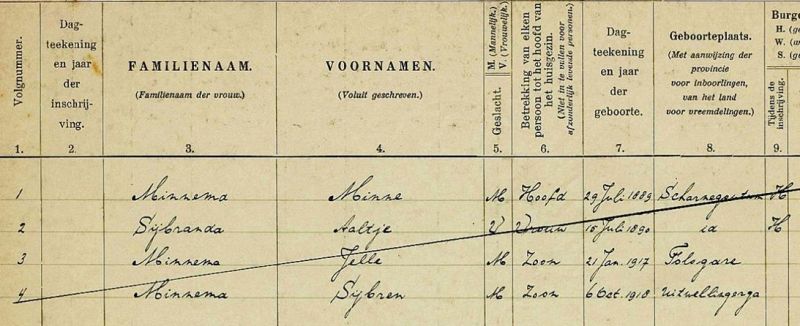 Volgnummer.
Dag-
teekening
en jaar
der
inschrij-
ving.
FAMILIENAAM.
(Familienaam der vrouw.)
VOORNAMEN.
(Voluit geschreven.)
Geslacht.
M. (Mannelijk.)
V. (Vrouwelijk.)
Betrekking van elken
persoon tot het hoofd van
het huisgezin.
(Niet in te vullen voor
afzonderlijk levende personen.)
Dag-
teekening
en jaar
der
geboorte.
Geboorteplaats.
(Met aanwijzing der
provincie
voor inboorlingen,
van het land
voor vreemdelingen.)
Burge
H. (ge
W. (
S. (ge
Tijdens de
inschrijving.
1. 2. 3. 4. 5. 6. 7. 8. 9.
1 Minnema Minne M Hoofd 29 Juli 1889 Scharnegoutum H
2 Sijbranda Aaltje V Vrouw 15 Juli 1890 id H
3 Minnema Jelle M Zoon 21 Jan. 1917 Folsgare
4 Minnema Sijbren M Zoon 6 Oct. 1918 Uitwellingerga